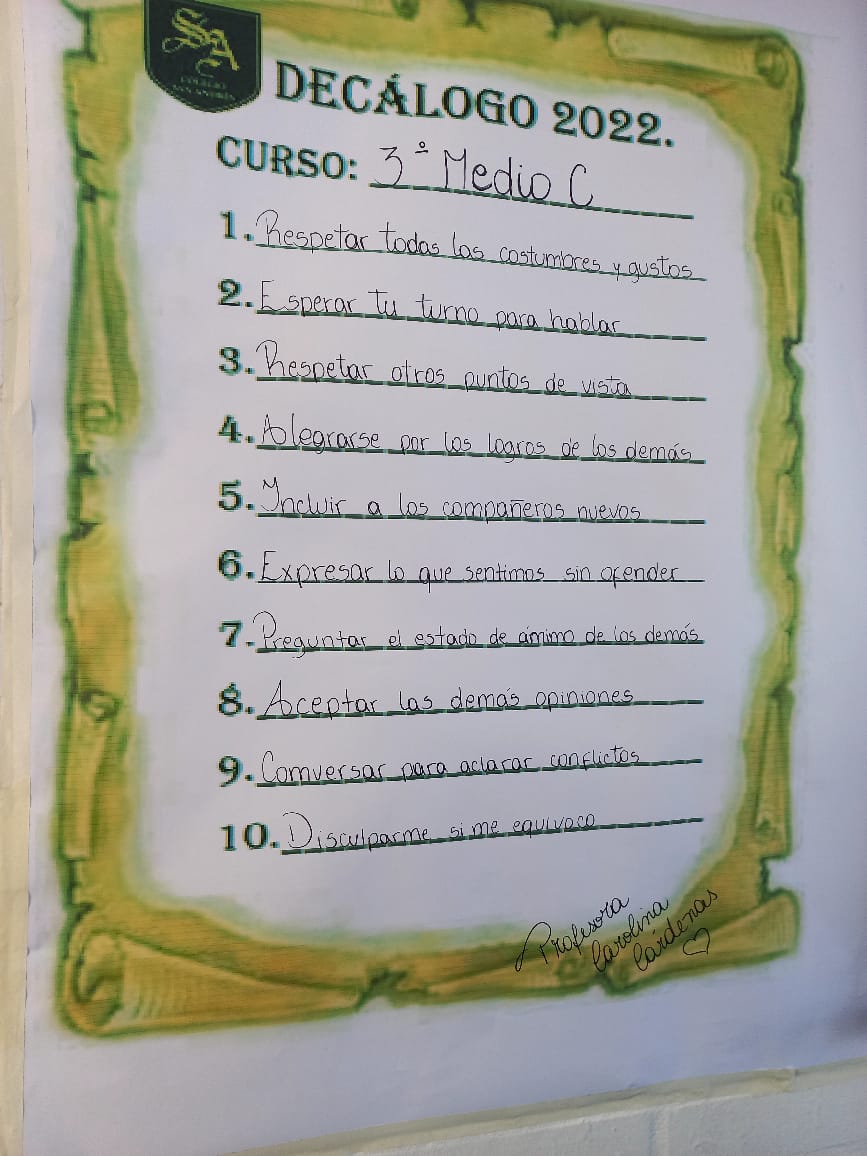 SA
COLEGIO
SAN ANDRÉS
DECÁLOGO 2022.
CURSO: 3° Medio C
1. Respetar todas las costumbres y gustos
2. Esperar tu turno para hablar
3. Respetar otros puntos de vista
4. Alegrarse por los logros de los demás
5. Incluir a los compañeros nuevos
6. Expresar lo que sentimos sin ofender
7. Preguntar el estado de ánimo de los demás
8. Aceptar las demás opiniones
9. Conversar para aclarar conflictos
10. Disculparme si me equivoco
Profesora
Carolina
Cárdenas